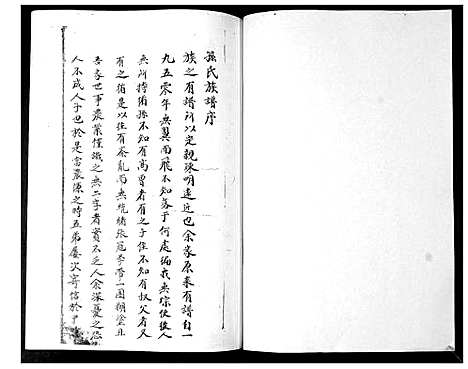 孫氏族譜序
族之有譜所以定親疎明遠近也余家原来有譜自一
九五零年無翼而飛不知落于何處痛哉無宗使後人
無所持循孫不知有高曾者有之子侄不知有叔父者又
有之循是以往有紊亂而無統緒張冠李帶一團糊塗且
吾家世事農業僅識之無二字者實不乏人余深憂之恐
人不成人子也於是當農隙之時五弟屡次寄信於